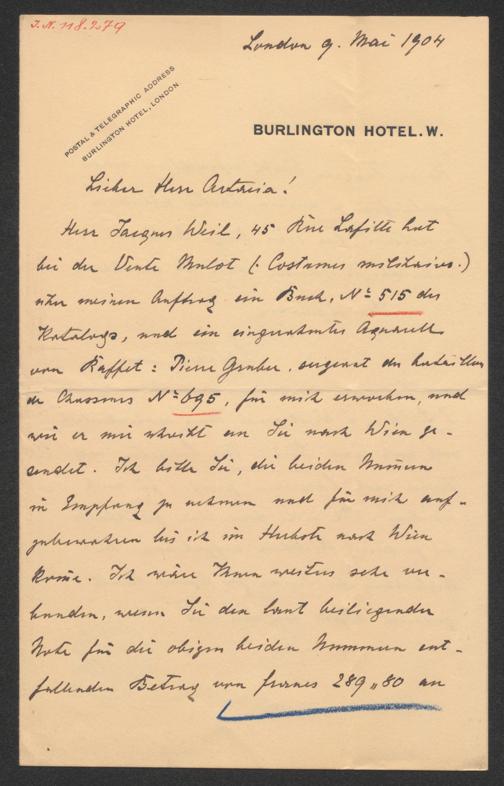 I.N. 118.279
London 9. Mai 1904
POSTAL & TELEGRAPHIC ADDRESS
BURLINGTON HOTEL, LONDON
BURLINGTON HOTEL. W.
Lieber Herr Artaria!
Herr Jacques Weil, 45 Rue Lafitte hat
bei der Vente Mulot (: Costumes militaires :)
über meinen Auftrag ein Buch, No 515 des
Katalogs, und ein eingerahmtes Aquarell
von Raffet: Pierre Gruber, sergeant du bataillon
de Chasseurs No 695, für mich erworben, und
wie er mir schreibt an Sie nach Wien ge-
sendet. Ich bitte Sie, die beiden Nummern
in Empfang zu nehmen und für mich auf-
zubewahren bis ich im Herbste nach Wien
komme. Ich wäre Ihnen weiters sehr ver-
bunden, wenn Sie den laut beiliegender
Note für die obigen beiden Nummern ent-
fallenden Betrag von francs 289,,80 an